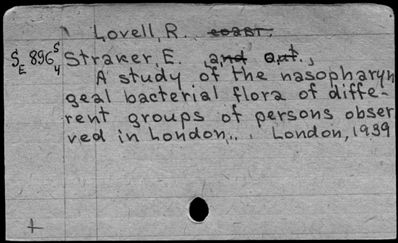 Lovell, R. coast.
S E 896 S 4 Straker, E. and aut.,
A study of the nasopharyn
geal bacterial flora of diffe-
rent groups of persons obser
ved in London,.. . London, 1939
+